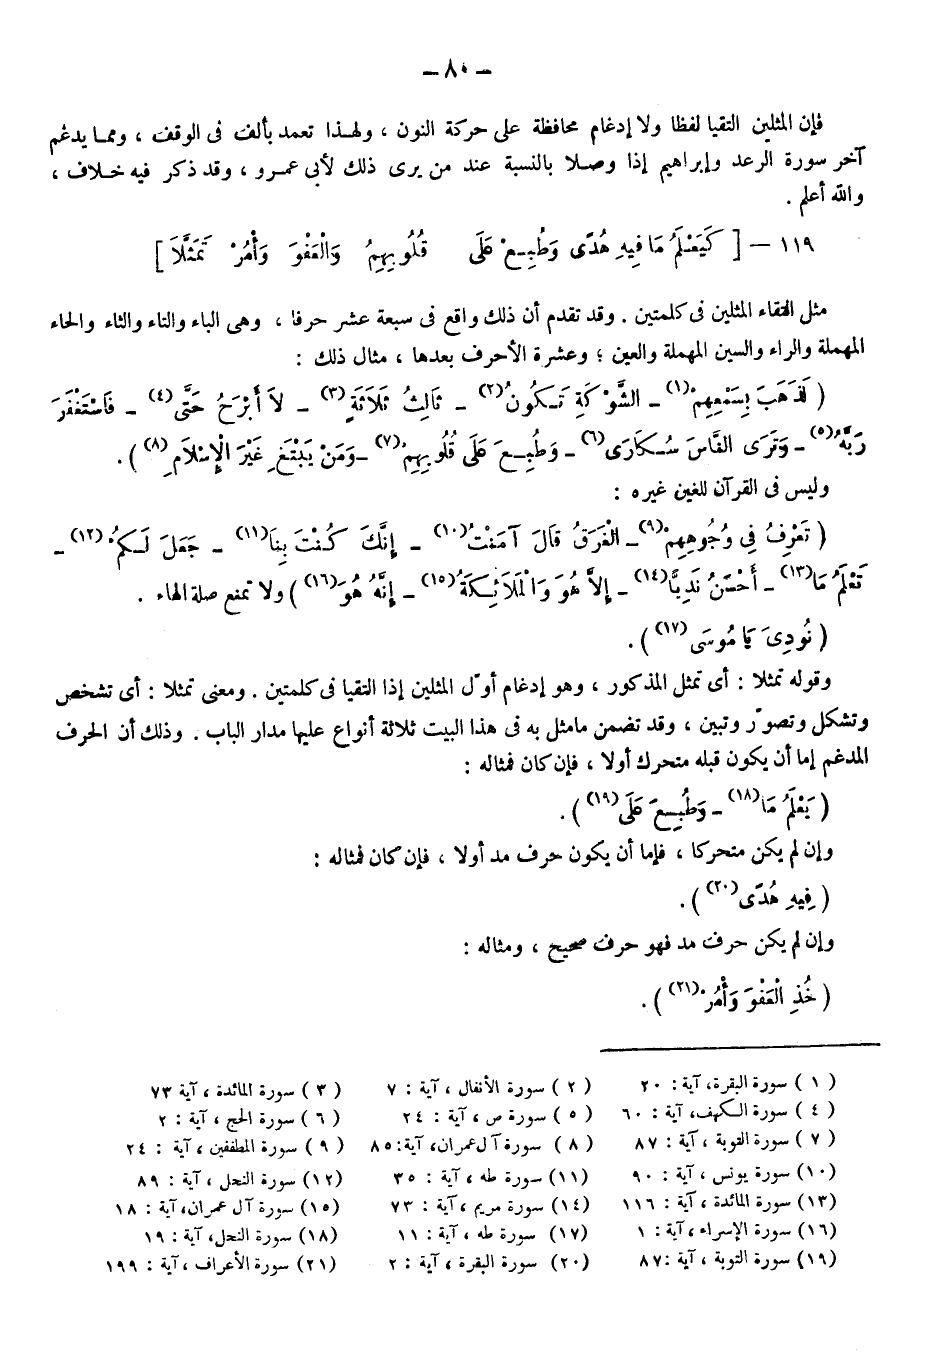 — ٨٠ —
فإن المثلين التقيا لفظا ولا إدغام محافظة على حركة النون ، ولهـذا تعمد بألف فى الوقف ، وممـا يدغم
آخر سورة الرعد وإبراهيم إذا وصـلا بالنسبة عند من يرى ذلك لأبى عمـرو ، وقد ذكر فيه خـلاف ،
والله أعلم .
١١٩ — [ كَيَعْلَمُ مَا فِيهِ هُدًى وَطُبِـعْ عَلَى قُلُوبِهِمُ وَالْعَفْوَ وَأْمُرْ تَمَثَّلَا ]
مثل التقاء المثلين فى كلمتين . وقد تقدم أن ذلك واقع فى سبعة عشر حرفا ، وهى الباء والتاء والثاء والحاء
المهملة والراء والسين المهملة والعين ؛ وعشرة الأحرف بعدها ، مثال ذلك :
( لَذَهَبَ بِسَمْعِهِمْ(١) ـ الشَّوْكَةِ تَـكُونُ(٢) ـ ثَالِثُ ثَلَاثَةٍ(٣) ـ لاَ أَبْرَحُ حَتَّى(٤) ـ فَاسْتَغْفَرَ
رَبَّهُ(٥) ـ وَتَرَى النَّاسَ سُـكَارَى(٦) ـ وَطُبِـعَ عَلَى قُلُوبِهِمْ(٧) ـ وَمَنْ يَبْتَغِ غَيْرَ الْإِسْلَامِ(٨) ) .
وليس فى القرآن للغين غيره :
( تَعْرِفُ فِى وُجُوهِهِمْ(٩) ـ الْغَرَقُ قَالَ آمَنْتُ(١٠) ـ إِنَّكَ كُنْتَ بِنَا(١١) ـ جَعَلَ لَـكُمْ(١٢) ـ
تَعْلَمُ مَا(١٣) ـ أَحْسَنُ نَدِيًّا(١٤) ـ إِلاَّ هُوَ وَالْمَلَائِـكَةُ(١٥) ـ إِنَّهُ هُوَ(١٦) ) ولا تمنع صلة الهاء .
( نُودِىَ يَا مُوسَى(١٧) ) .
وقوله تمثلا : أى تمثل المذكور ، وهو إدغام أوّل المثلين إذا التقيا فى كلمتين . ومعنى تمثلا : أى تشخص
وتشكل وتصوّر وتبين ، وقد تضمن مامثل به فى هذا البيت ثلاثة أنواع عليها مدار الباب . وذلك أن الحرف
المدغم إما أن يكون قبله متحرك أولا ، فإن كان فمثاله :
( يَعْلَمُ مَا(١٨) ـ وَطُبِـعَ عَلَى(١٩) ) .
وإن لم يكن متحركا ، فإما أن يكون حرف مد أولا ، فإن كان فمثاله :
( فِيهِ هُدًى(٢٠) ) .
وإن لم يكن حرف مد فهو حرف صحيح ، ومثاله :
( خُذِ الْعَفْوَ وَأْمُرْ(٢١) ) .
( ١ ) سورة البقرة، آية : ٢٠ ( ٢ ) سورة الأنفال ، آية : ٧ ( ٣ ) سورة المائدة ، آية ٧٣
( ٤ ) سورة الـكهف، آية : ٦٠ ( ٥ ) سورة ص ، آية : ٢٤ ( ٦ ) سورة الحج ، آية : ٢
( ٧ ) سورة التوبة ، آية : ٨٧ ( ٨ ) سورة آل عمران، آية: ٨٥ ( ٩ ) سورة المطففين ، آية : ٢٤
(١٠) سورة يونس ، آية : ٩٠ (١١) سورة طه ، آية : ٣٥ (١٢) سورة النحل ، آية : ٨٩
(١٣) سورة المائدة ، آية : ١١٦ (١٤) سورة مريم ، آية : ٧٣ (١٥) سورة آل عمران، آية : ١٨
(١٦) سورة الإسراء ، آية : ١ (١٧) سورة طه ، آية : ١١ (١٨) سورة النحل، آية : ١٩
(١٩) سورة التوبة ، آية :٨٧ (٢٠) سورة البقرة ، آية : ٢ (٢١) سورة الأعراف ، آية : ١٩٩